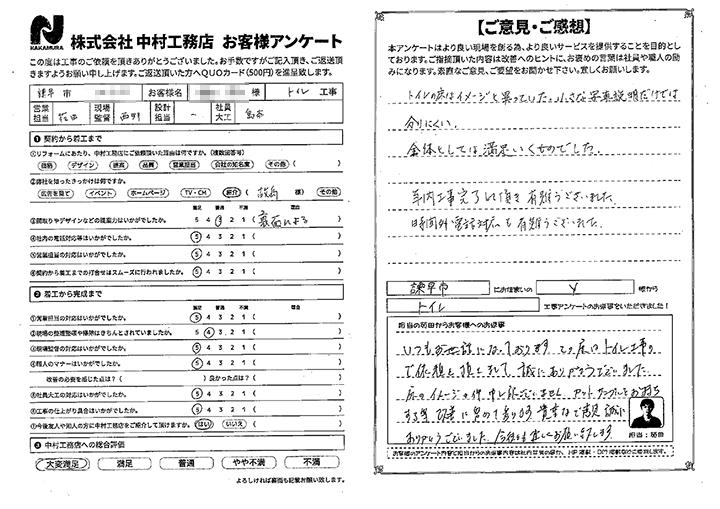 NAKAMURA
株式会社 中村工務店 お客様アンケート
この度は工事のご依頼を頂きありがとうございました。お手数ですがご記入頂き、ご返送頂
きますようお願い申し上げます。ご返送頂いた方へQUOカード(500円)を進呈致します。
諫早 市 お客様名 様 トイレ 工事
営業担当 現場監督 西野 設計担当 ~ 社員大工
❶ 契約から着工まで
①リフォームにあたり、中村工務店にご依頼頂いた理由は何ですか。(複数回答可)
価格 デザイン 提案 品質 営業担当 会社の知名度 その他( )
②弊社を知ったきっかけは何ですか。
広告を見て イベント ホームページ TV・CM 紹介( 様) その他
満足 普通 不満 理由
③間取りやデザインなどの提案力はいかがでしたか。 5 4 3 2 1 ( 裏面による )
④社内の電話対応等はいかがでしたか。 5 4 3 2 1 ( )
⑤営業担当の対応はいかがでしたか。 5 4 3 2 1 ( )
⑥契約から着工までの打合せはスムーズに行われましたか。 5 4 3 2 1 ( )
❷ 着工から完成まで
満足 普通 不満 理由
①営業担当の対応はいかがでしたか。 5 4 3 2 1 ( )
②現場の整理整頓や掃除はきちんとされていましたか。 5 4 3 2 1 ( )
③現場監督の対応はいかがでしたか。 5 4 3 2 1 ( )
④職人のマナーはいかがでしたか。 5 4 3 2 1 ( )
改善の必要を感じた点は?( )良かった点は?( )
⑤社員大工の対応はいかがでしたか。 5 4 3 2 1 ( )
⑥工事の仕上がり具合はいかがでしたか。 5 4 3 2 1 ( )
⑦今後友人や知人の方に中村工務店をご紹介して頂けますか。 はい いいえ ( )
❸ 中村工務店への総合評価
大変満足 満足 普通 やや不満 不満
よろしければ裏面も記載お願い致します。
【ご意見・ご感想】
本アンケートはより良い現場を創る為、より良いサービスを提供することを目的とし
ております。ご指摘頂いた内容は改善へのヒントに、お褒めの言葉は社員や職人の励
みになります。素直なご意見、ご要望をお聞かせ下さい。宜しくお願い致します。
トイレの床はイメージと異っていた。小さな写真説明だけでは
分りにくい。
全体としては満足いくものでした。
年内工事完了して頂き有難うございました
時間外電話対応へも有難うございました。
諫早市 にお住いの Y 様から
トイレ 工事アンケートのお返事をいただきました!
担当の苑田からお客様へのお返事
いつもお世話になっております この度はトイレ工事の
ご依頼を頂きまして 誠にありがとうございました
床のイメージの件 申し訳ございません
ありがとうございました 今後とも宜しくお願い致します
担当:苑田